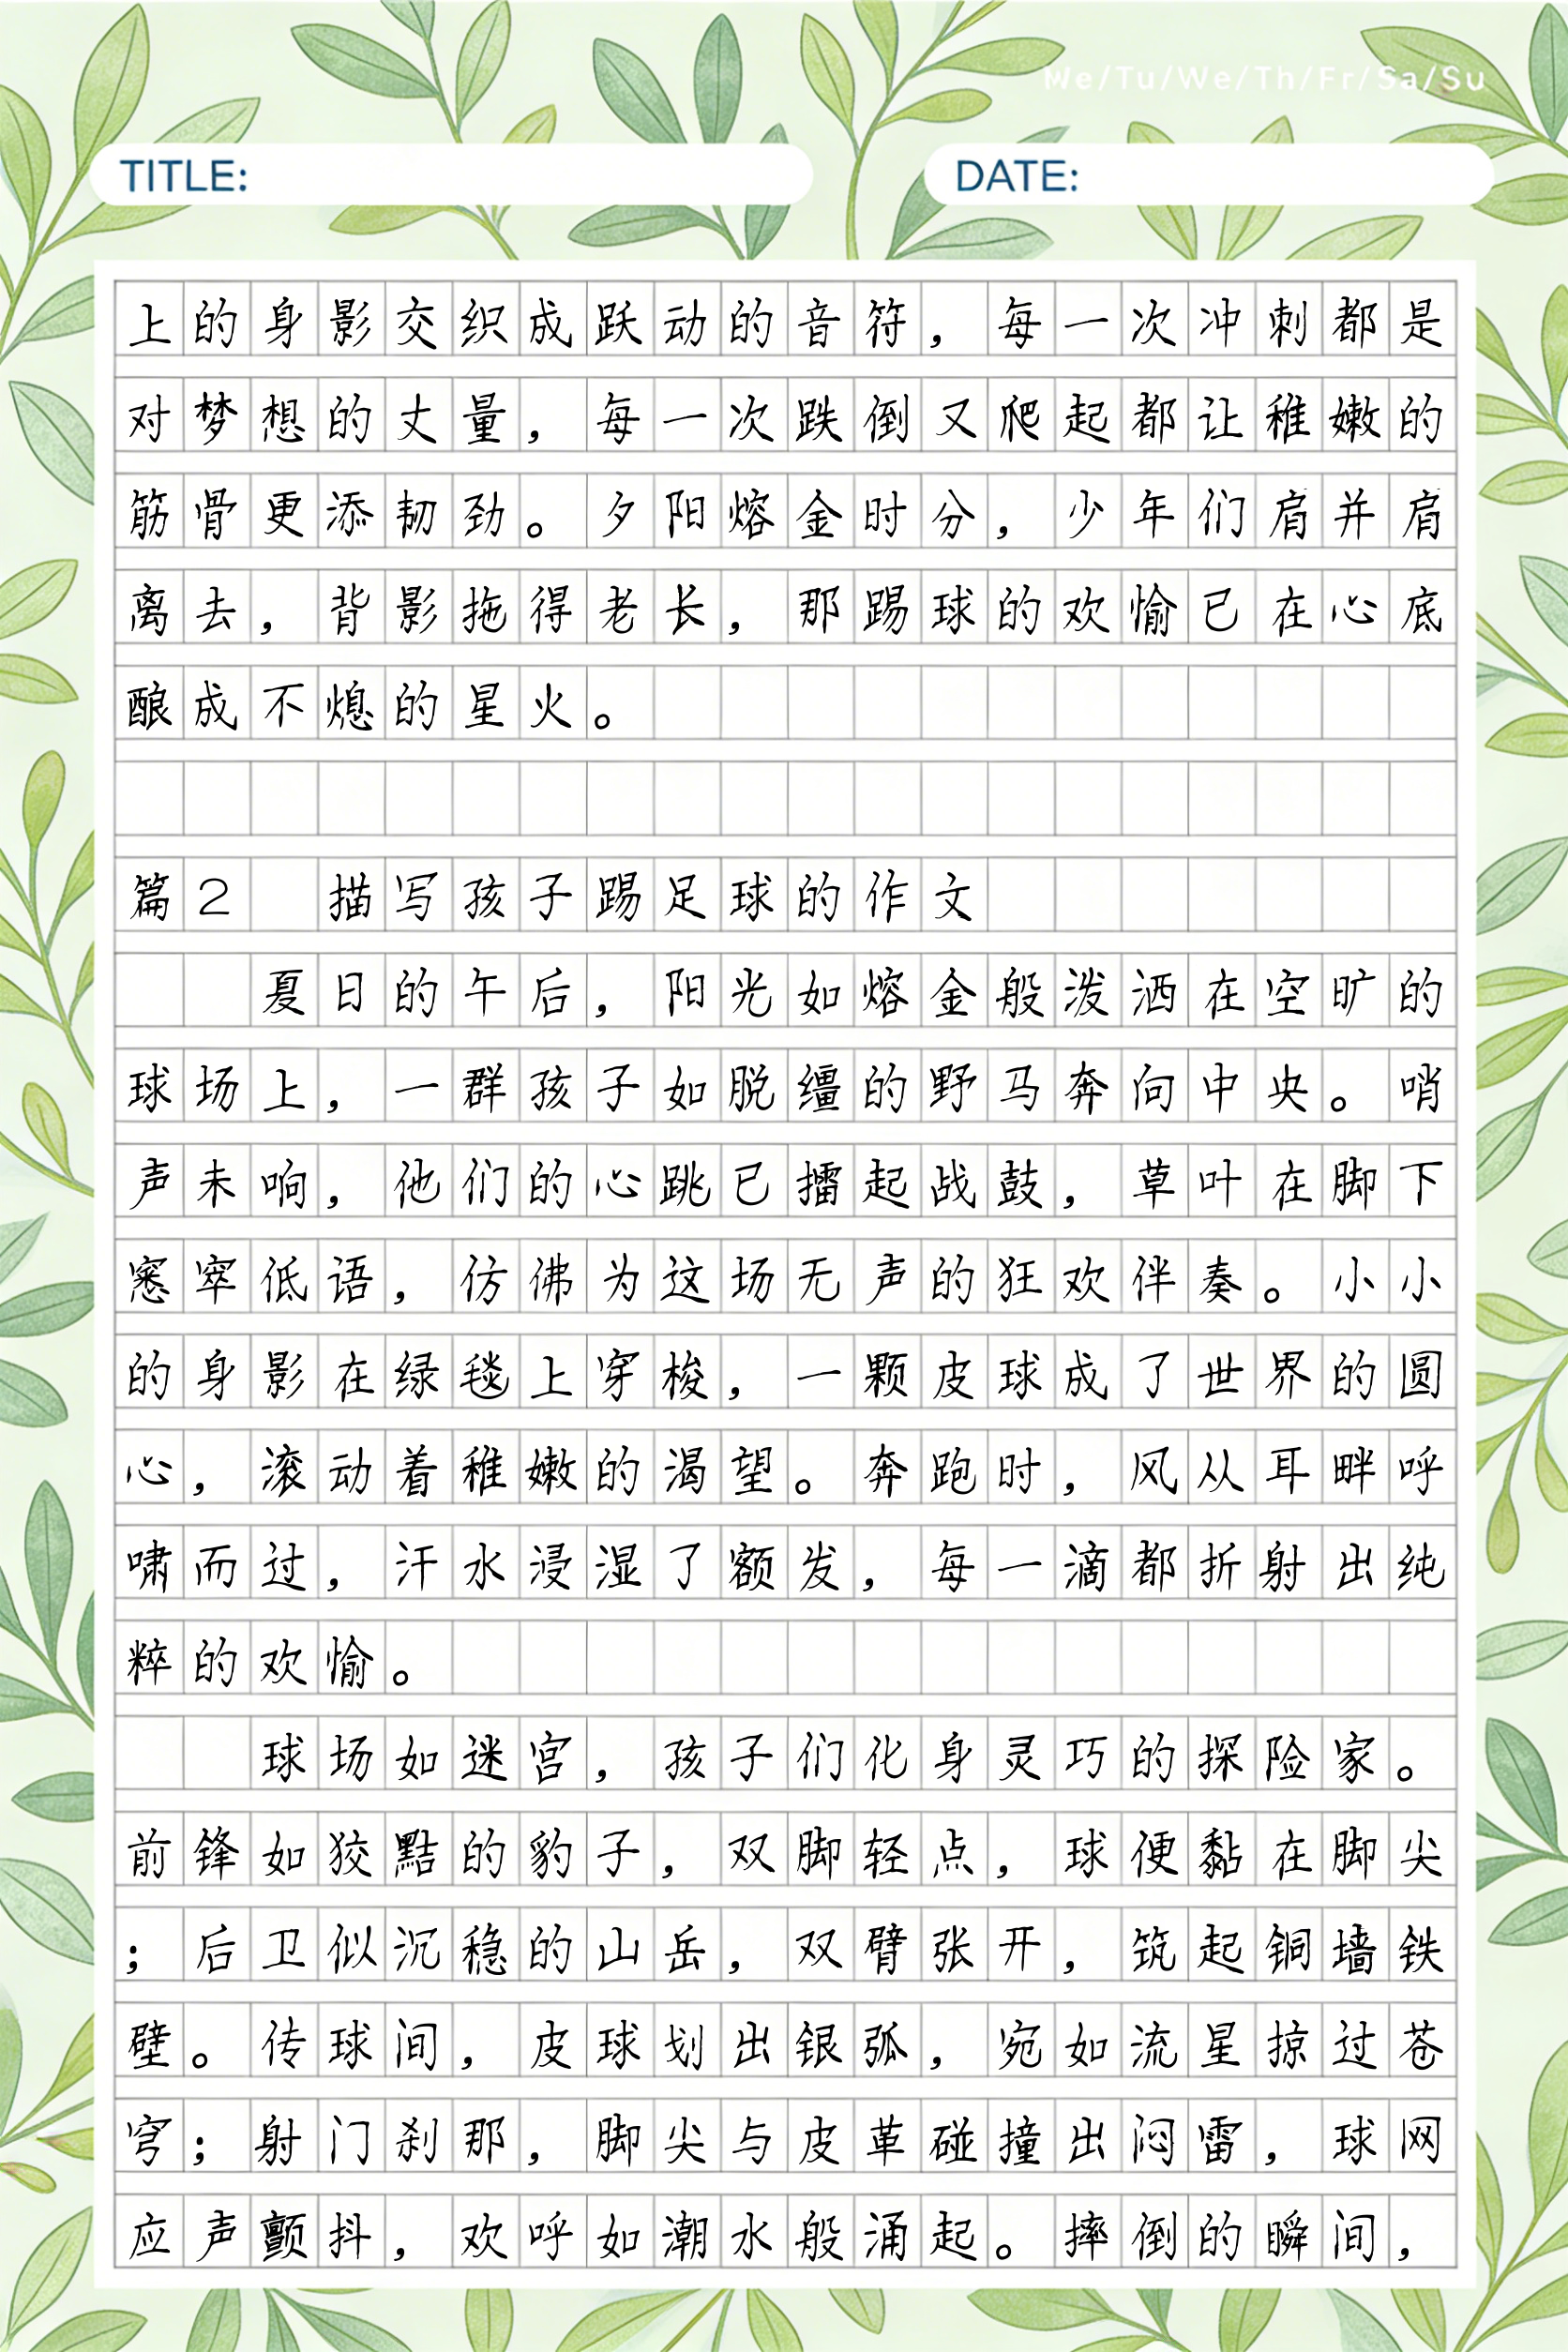 Me/Tu/We/Th/Fr/Sa/Su
TITLE: DATE:
上的身影交织成跃动的音符，每一次冲刺都是
对梦想的丈量，每一次跌倒又爬起都让稚嫩的
筋骨更添韧劲。夕阳熔金时分，少年们肩并肩
离去，背影拖得老长，那踢球的欢愉已在心底
酿成不熄的星火。
篇2 描写孩子踢足球的作文
夏日的午后，阳光如熔金般泼洒在空旷的
球场上，一群孩子如脱缰的野马奔向中央。哨
声未响，他们的心跳已擂起战鼓，草叶在脚下
窸窣低语，仿佛为这场无声的狂欢伴奏。小小
的身影在绿毯上穿梭，一颗皮球成了世界的圆
心，滚动着稚嫩的渴望。奔跑时，风从耳畔呼
啸而过，汗水浸湿了额发，每一滴都折射出纯
粹的欢愉。
球场如迷宫，孩子们化身灵巧的探险家。
前锋如狡黠的豹子，双脚轻点，球便黏在脚尖
；后卫似沉稳的山岳，双臂张开，筑起铜墙铁
壁。传球间，皮球划出银弧，宛如流星掠过苍
穹；射门刹那，脚尖与皮革碰撞出闷雷，球网
应声颤抖，欢呼如潮水般涌起。摔倒的瞬间，